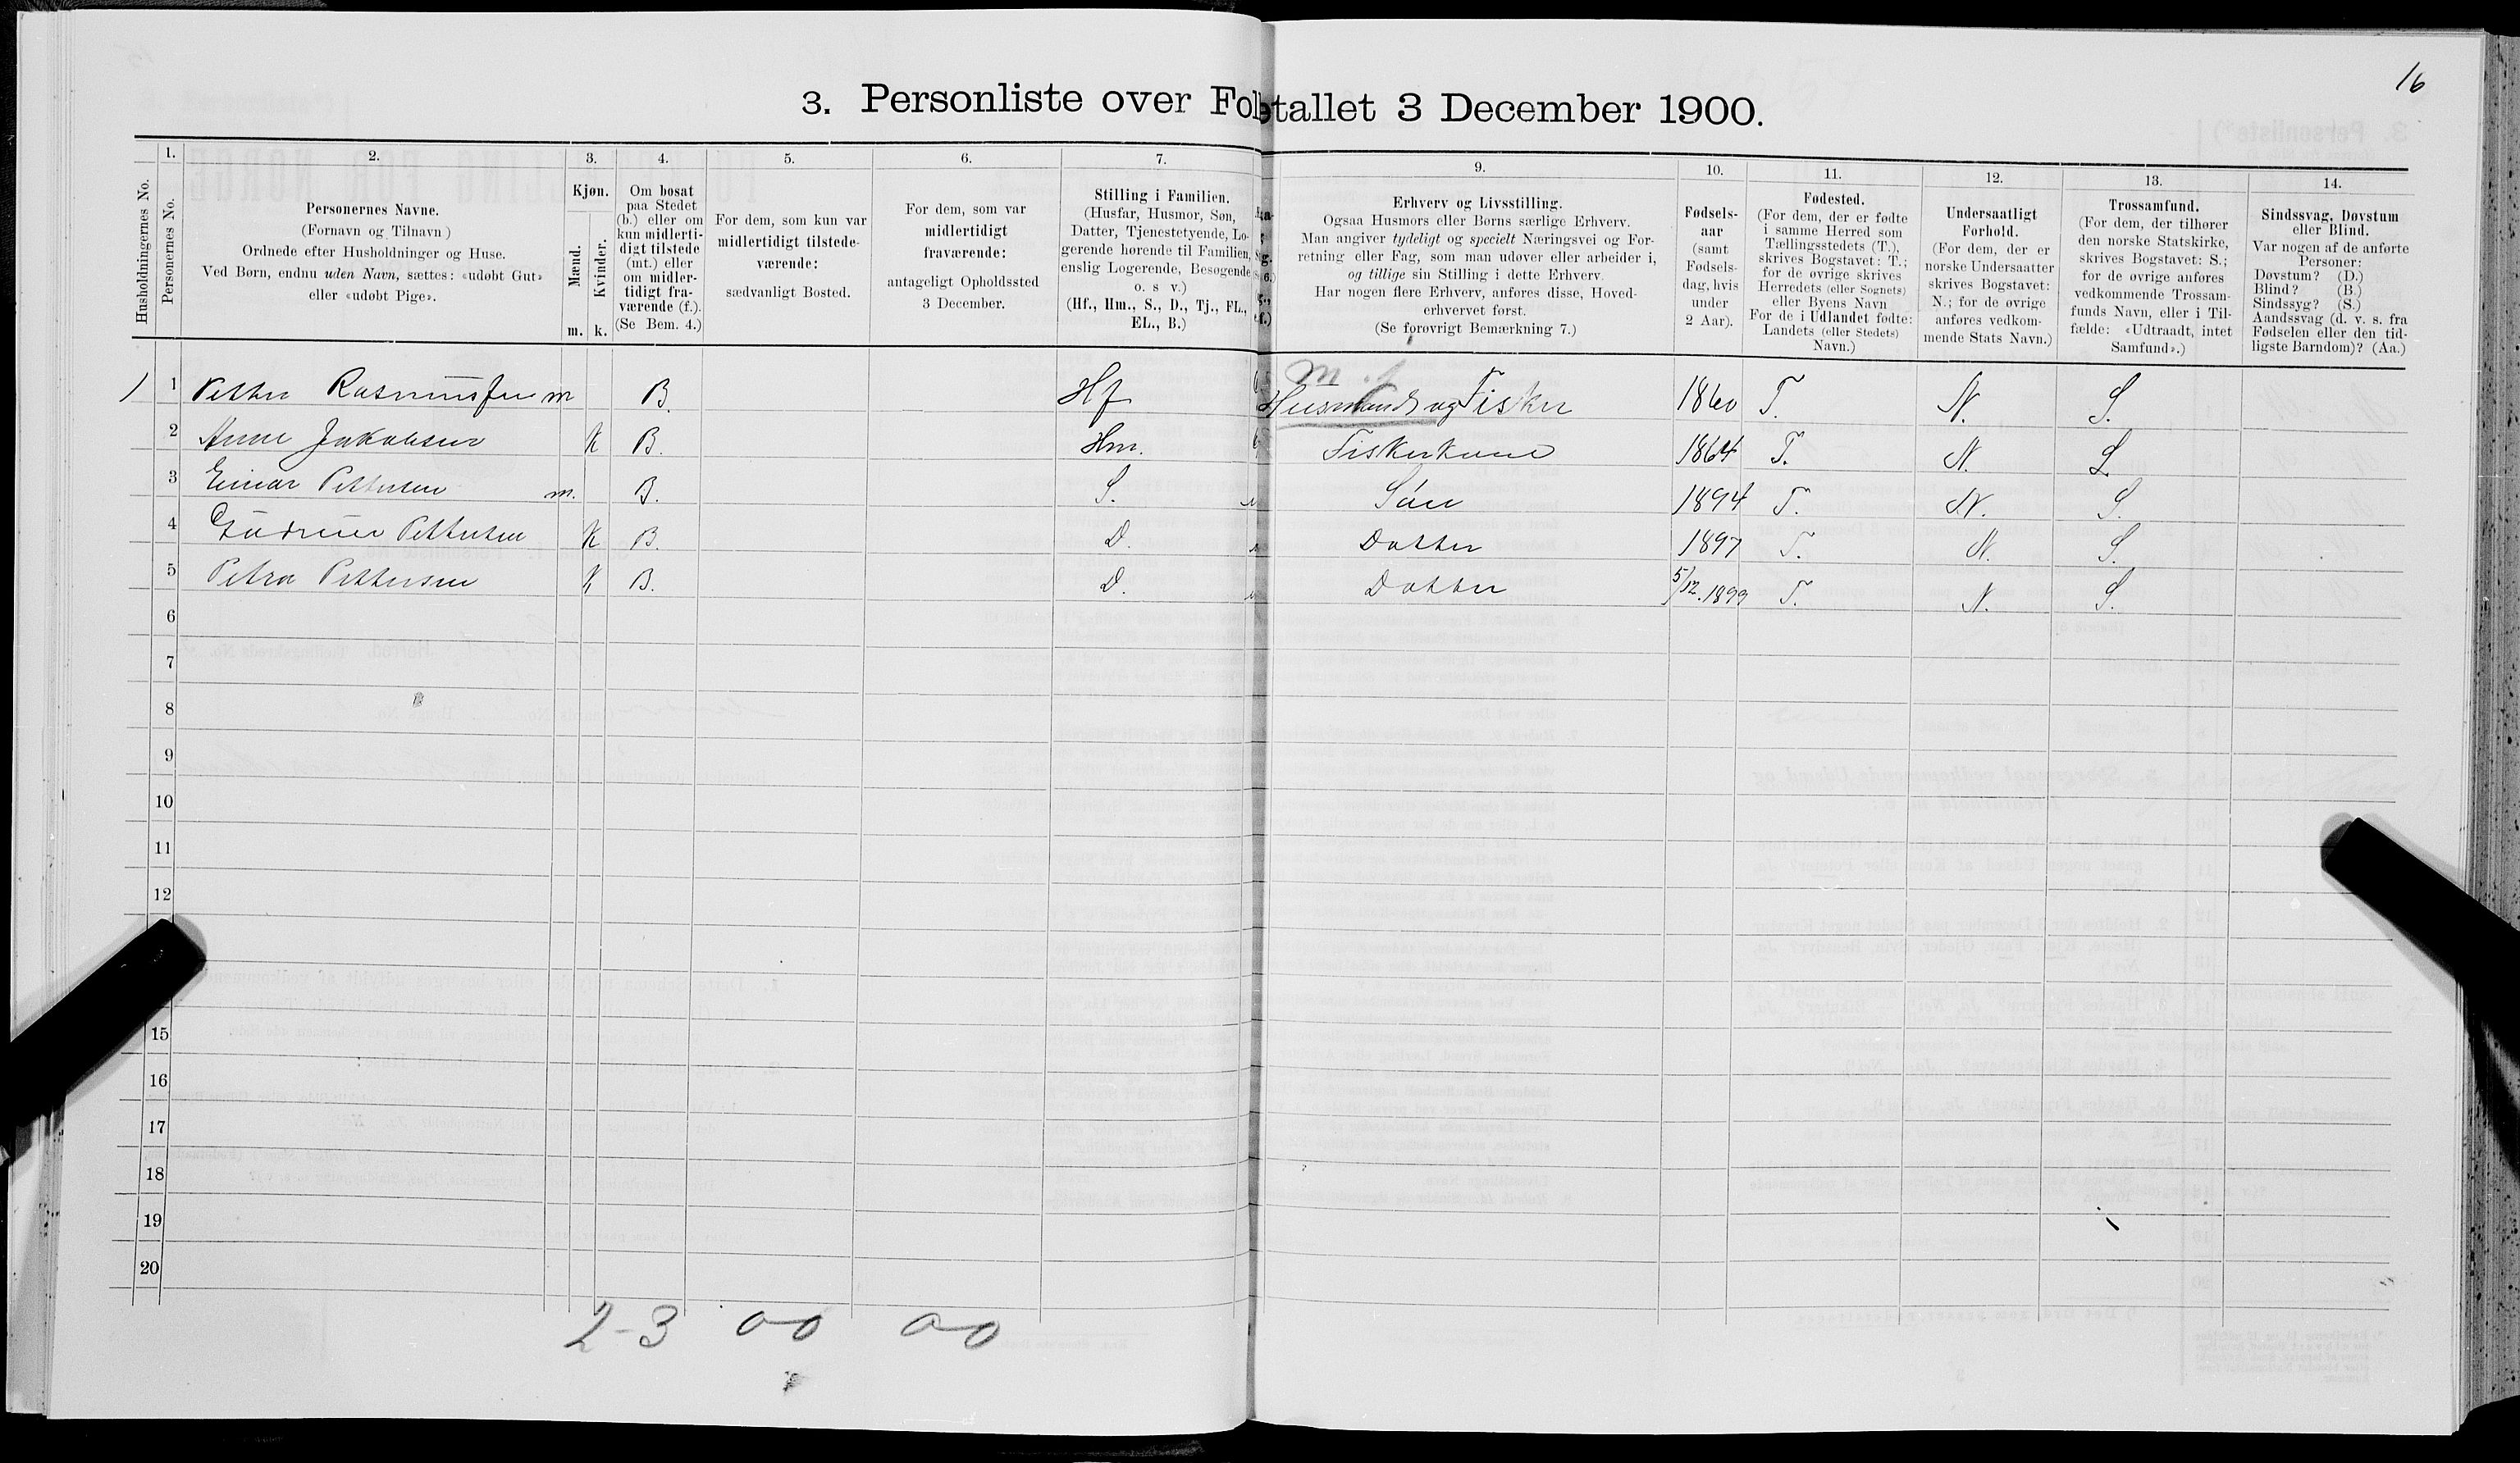 16
3. Personliste over Fol
etallet 3 December 1900.
Husholdningernes No.
1.
Personernes No.
2.
Personernes Navne.
(Fornavn og Tilnavn.)
Ordnede efter Husholdninger og Huse.
Ved Børn, endnu uden Navn, sættes: «udøbt Gut»
eller «udøbt Pige».
3.
Kjøn.
Mænd.
Kvinder.
m. k.
4.
Om bosat
paa Stedet
(b.) eller om
kun midlerti-
digt tilstede
(mt.) eller
om midler-
tidigt fra-
værende (f.).
(Se Bem. 4.)
5.
For dem, som kun var
midlertidigt tilstede-
værende:
sædvanligt Bosted.
6.
For dem, som var
midlertidigt
fraværende:
antageligt Opholdssted
3 December.
7.
Stilling i Familien.
(Husfar, Husmor, Søn,
Datter, Tjenestetyende, Lo-
gerende hørende til Familien,
enslig Logerende, Besøgende
o. s v.)
(Hf., Hm., S., D., Tj., FL.,
EL., B.)
9.
Erhverv og Livsstilling.
Ogsaa Husmors eller Børns særlige Erhverv.
Man angiver tydeligt og specielt Næringsvei og For-
retning eller Fag, som man udøver eller arbeider i,
og tillige sin Stilling i dette Erhverv.
Har nogen flere Erhverv, anføres disse, Hoved-
erhvervet først.
(Se forøvrigt Bemærkning 7.)
10.
Fødsels-
aar
(samt
Fødsels-
dag, hvis
under
2 Aar).
11.
Fødested.
(For dem, der er fødte
i samme Herred som
Tællingsstedets (T.),
skrives Bogstavet: T.;
for de øvrige skrives
Herredets (eller Sognets)
eller Byens Navn
For de i Udlandet fødte:
Landets (eller Stedets)
Navn.)
12.
Undersaatligt
Forhold.
(For dem, der er
norske Undersaatter
skrives Bogstavet:
N.; for de øvrige
anføres vedkom-
mende Stats Navn.)
13.
Trossamfund.
(For dem, der tilhører
den norske Statskirke,
skrives Bogstavet: S.;
for de øvrige anføres
vedkommende Trossam-
funds Navn, eller i Til-
fælde: «Udtraadt, intet
Samfund».)
14.
Sindssvag, Døvstum
eller Blind.
Var nogen af de anførte
Personer:
Døvstum? (D.)
Blind? (B.)
Sindssyg? (S.)
Aandssvag (d. v. s. fra
Fødselen eller den tid-
ligste Barndom)? (Aa.)
1 1 Petter Rasmussen m B. Hf Husmand og Fisker 1860 T. N. S.
2 Anne Jakobsen K B. Hm. Fiskerkone 1864 T. N. S.
3 Einar Pettersen m. B. S. Søn 1894 T. N. S.
4 Gudrun Pettersen K B. D. Datter 1897 T. N. S.
5 Petra Pettersen K B. D. Datter 5/12.1899 T. N. S.
6
7
8
9
10
11
12
15
16
17
18
19
20
2-3 00 00